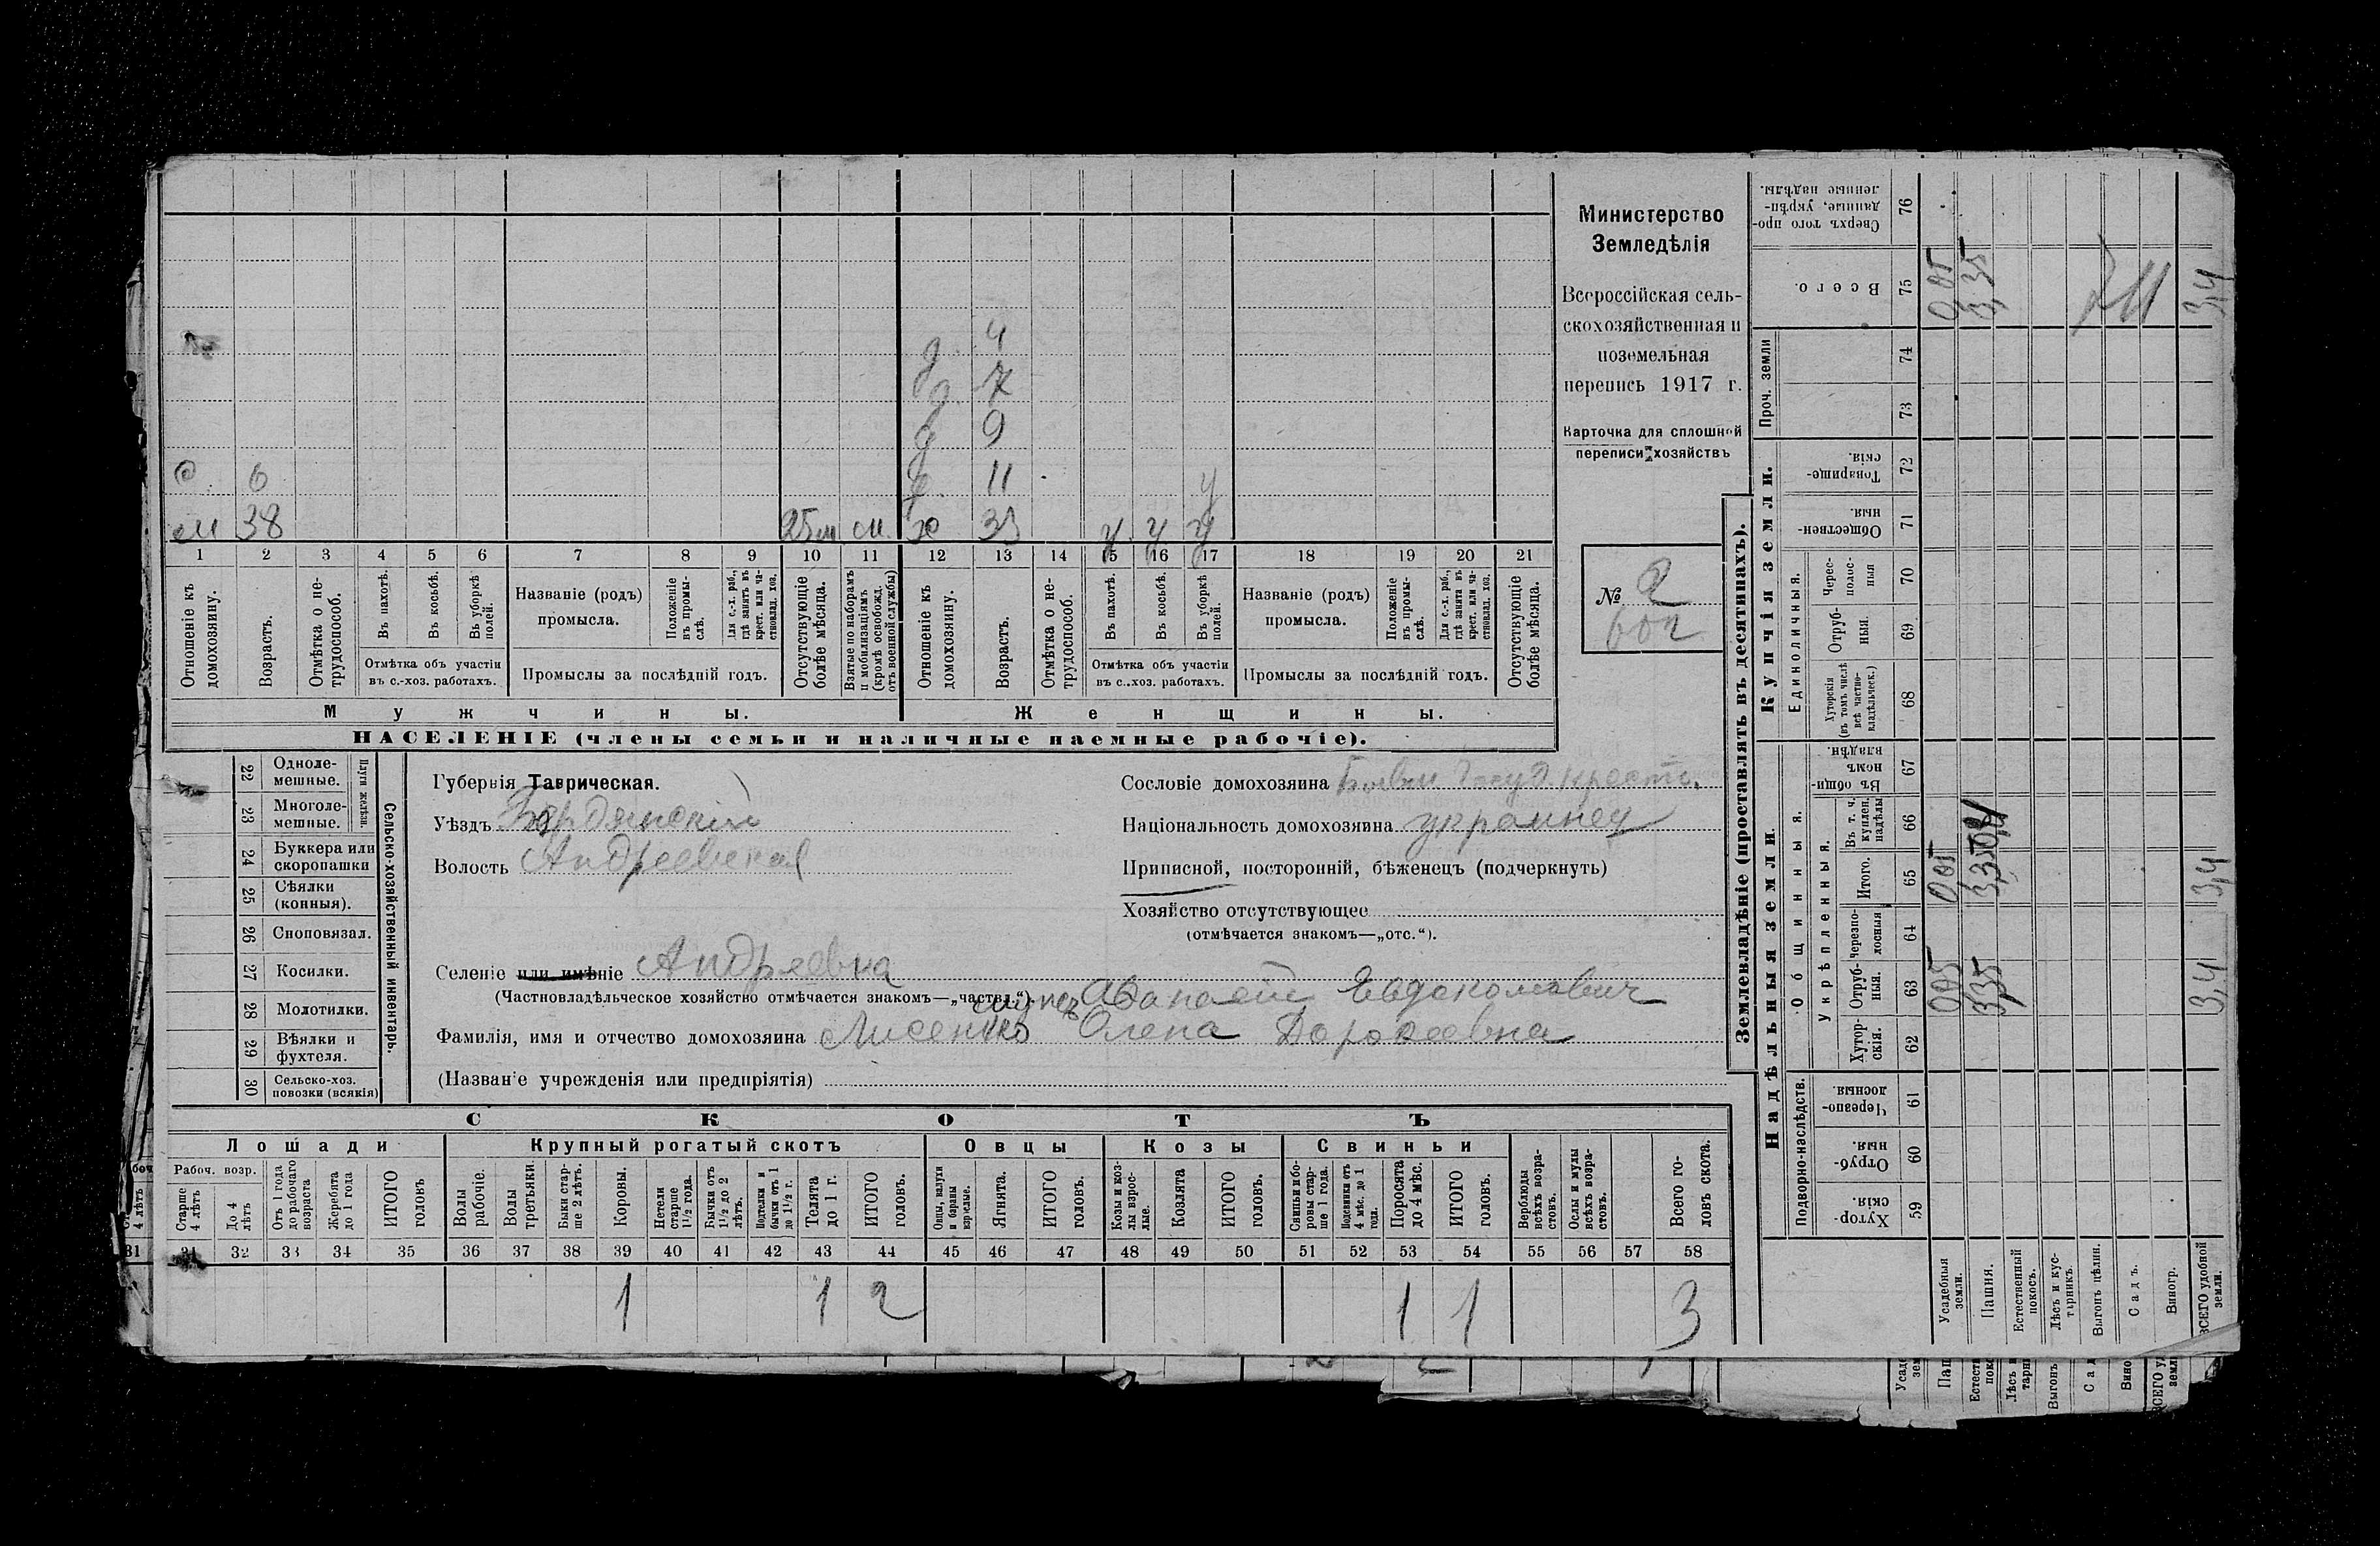 Министерство
Земледѣлія
Всероссійская сель-
скохозяйственная и
поземельная
перепись 1917 г.
Карточка для сплошной
переписи хозяйствъ
№ 2
602
д 4
д 7
д 9
д 11 у
с 6
м 38 25 м м х 33 у у у
1 2 3 4 5 6 7 8 9 10 11 12 13 14 15 16 17 18 19 20 21
Отношеніе къ домохозяину.
Возрастъ.
Отмѣтка о не-трудоспособ.
Въ пахотѣ.
Въ косьбѣ.
Въ уборкѣ полей.
Отмѣтка объ участіи
въ с.-хоз. работахъ.
Названіе (родъ)
промысла.
Положеніе въ промы-слѣ.
Для с.-х. раб., гдѣ занятъ въ крест. или ча-стновлад. хоз.
Промыслы за послѣдній годъ.
Отсутствующіе болѣе мѣсяца.
Взятые по наборамъ и мобилизаціямъ (кромѣ освобожд. отъ военной службы)
Отношеніе къ домохозяину.
Возрастъ.
Отмѣтка о не-трудоспособ.
Въ пахотѣ.
Въ косьбѣ.
Въ уборкѣ полей.
Отмѣтка объ участіи
въ с..хоз. работахъ.
Названіе (родъ)
промысла.
Положеніе въ промы-слѣ.
Для с.-х. раб., гдѣ занята въ крест. или ча-стновлад. хоз.
Промыслы за послѣдній годъ.
Отсутствующіе болѣе мѣсяца.
Мужчины. Женщины.
НАСЕЛЕНІЕ (члены семьи и наличные наемные рабочіе).
22 Одноле-мешные.
23 Многоле-мешные.
Плуги желѣзн.
24 Буккера или скоропашки
25 Сѣялки (конныя).
26 Сноповязал.
27 Косилки.
28 Молотилки.
29 Вѣялки и фухтеля.
30 Сельско-хоз. повозки (всякія)
Сельско-хозяйственный инвентарь.
Губернія Таврическая.
Уѣздъ Бердянскій
Волость Андреевская
Сословіе домохозяина Бывш. Госуд. крестьян.
Національность домохозяина украинец
Приписной, посторонній, бѣженецъ (подчеркнуть)
Хозяйство отсутствующее
(отмѣчается знакомъ—„отс.“).
Селеніе или имѣніе Андреевка
(Частновладѣльческое хозяйство отмѣчается знакомъ—„частвл.“).
Афанасій Евдокимович
Фамилія, имя и отчество домохозяина Лисенко Олена Дорофеевна
(Названіе учрежденія или предпріятія)
СКОТЪ
Лошади Крупный рогатый скотъ Овцы Козы Свиньи
Рабоч. возр.
Старше 4 лѣтъ
До 4 лѣтъ
Отъ 1 года до рабочаго возраста
Жеребята до 1 года
ИТОГО головъ
Волы рабочіе.
Волы третьяки.
Быки стар-ше 2 лѣтъ.
Коровы.
Нетели старше 1½ года.
Бычки отъ 1½ до 2 лѣтъ.
Подтелки и бычки отъ 1 до 1½ г.
Телята до 1 г.
ИТОГО головъ.
Овцы, валухи и бараны взрослые.
Ягнята.
ИТОГО головъ.
Козы и коз-лы взрос-лые.
Козлята
ИТОГО головъ.
Свиньи и бо-ровы стар-ше 1 года.
Подсвинки отъ 4 мѣс. до 1 года.
Поросята до 4 мѣс.
ИТОГО головъ.
Верблюды всѣхъ возра-стовъ.
Ослы и мулы всѣхъ возра-стовъ.
Всего го-ловъ скота.
31 32 33 34 35 36 37 38 39 40 41 42 43 44 45 46 47 48 49 50 51 52 53 54 55 56 57 58
1 1 2 1 1 3
Землевладѣніе (проставлять въ десятинахъ).
Надѣльныя земли. Купчія земли. Проч. земли
Подворно-наслѣдств. Общинныя. Укрѣпленныя. Единоличныя.
59 Хутор-скія.
60 Отруб-ныя.
61 Черезпо-лосныя.
62 Хутор-скія.
63 Отруб-ныя.
64 Черезпо-лосныя
65 Итого.
66 Въ т. ч. куплен. надѣлы
67 Въ общи-номъ владѣн.
68 Хуторскія (въ томъ числѣ всѣ частно-владѣльческ.)
69 Отруб-ныя.
70 Черес-полос-ныя
71 Обществен-ныя.
72 Товарище-скія.
73
74
75 Всего.
76 Сверхъ того про-данные, укрѣп-ленные надѣлы.
Усадебныя земли. 0,05 0,05 0,05
Пашня. 3,35 3,35 3,35
Естественный покосъ.
Лѣсъ и кус-тарникъ.
Выгонъ цѣлин.
Садъ.
Виногр.
ВСЕГО удобной земли. 3,4 3,4 3,4